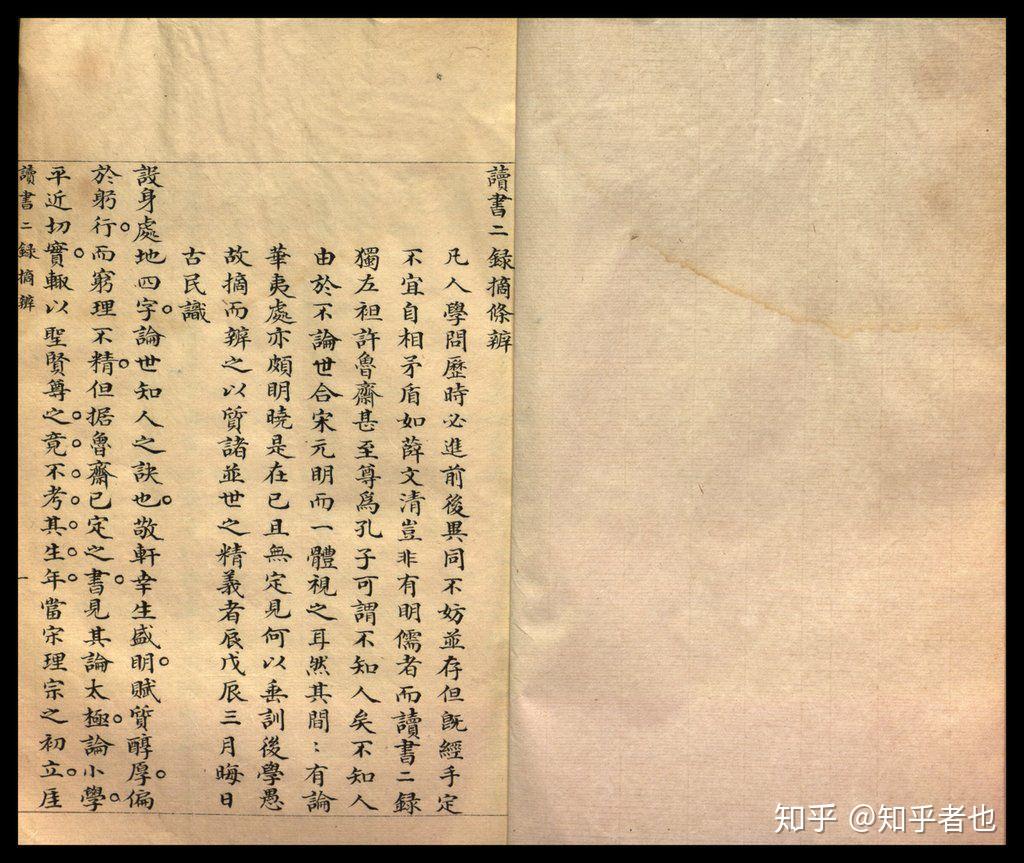 讀書二録摘條辨
凡人學問歷時必進前後異同不妨並存但既經手定
不宜自相矛盾如薛文清豈非有明儒者而讀書二録
獨左袒許魯齋甚至尊爲孔子可謂不知人矣不知人
由於不論世合宋元明而一體視之耳然其間〻有論
華夷處亦頗明曉是在已且無定見何以垂訓後學愚
故摘而辨之以質諸並世之精義者辰戊辰三月晦日
古民識
設身處地四字論世知人之訣也敬軒幸生盛明賦質醇厚偏
於躬行而窮理不精但据魯齋已定之書見其論太極論小學
平近切實輒以聖賢尊之竟不考其生年當宋理宗之初立厓
讀書二録摘辨
一
知乎 @知乎者也